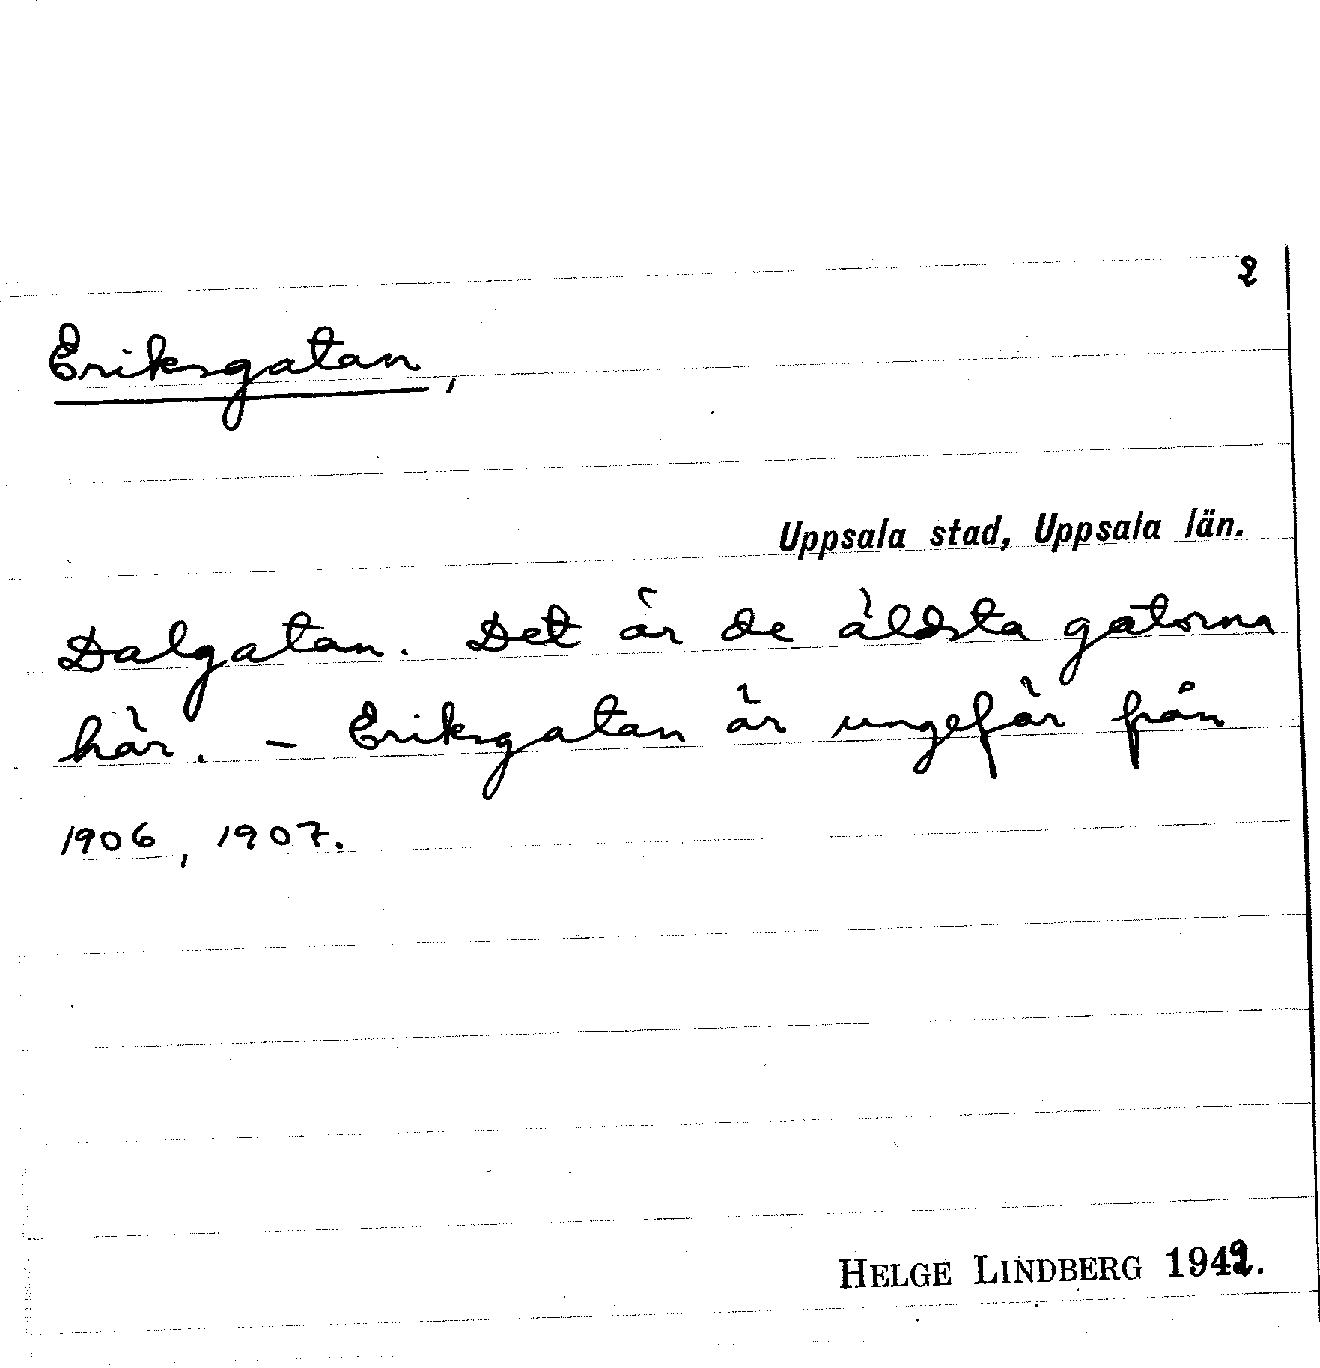 2
Eriksgatan,
Uppsala stad, Uppsala län.
Dalgatan. Det är de äldsta gatorna
här. – Eriksgatan är ungefär från
1906, 1907.
HELGE LINDBERG 1942.